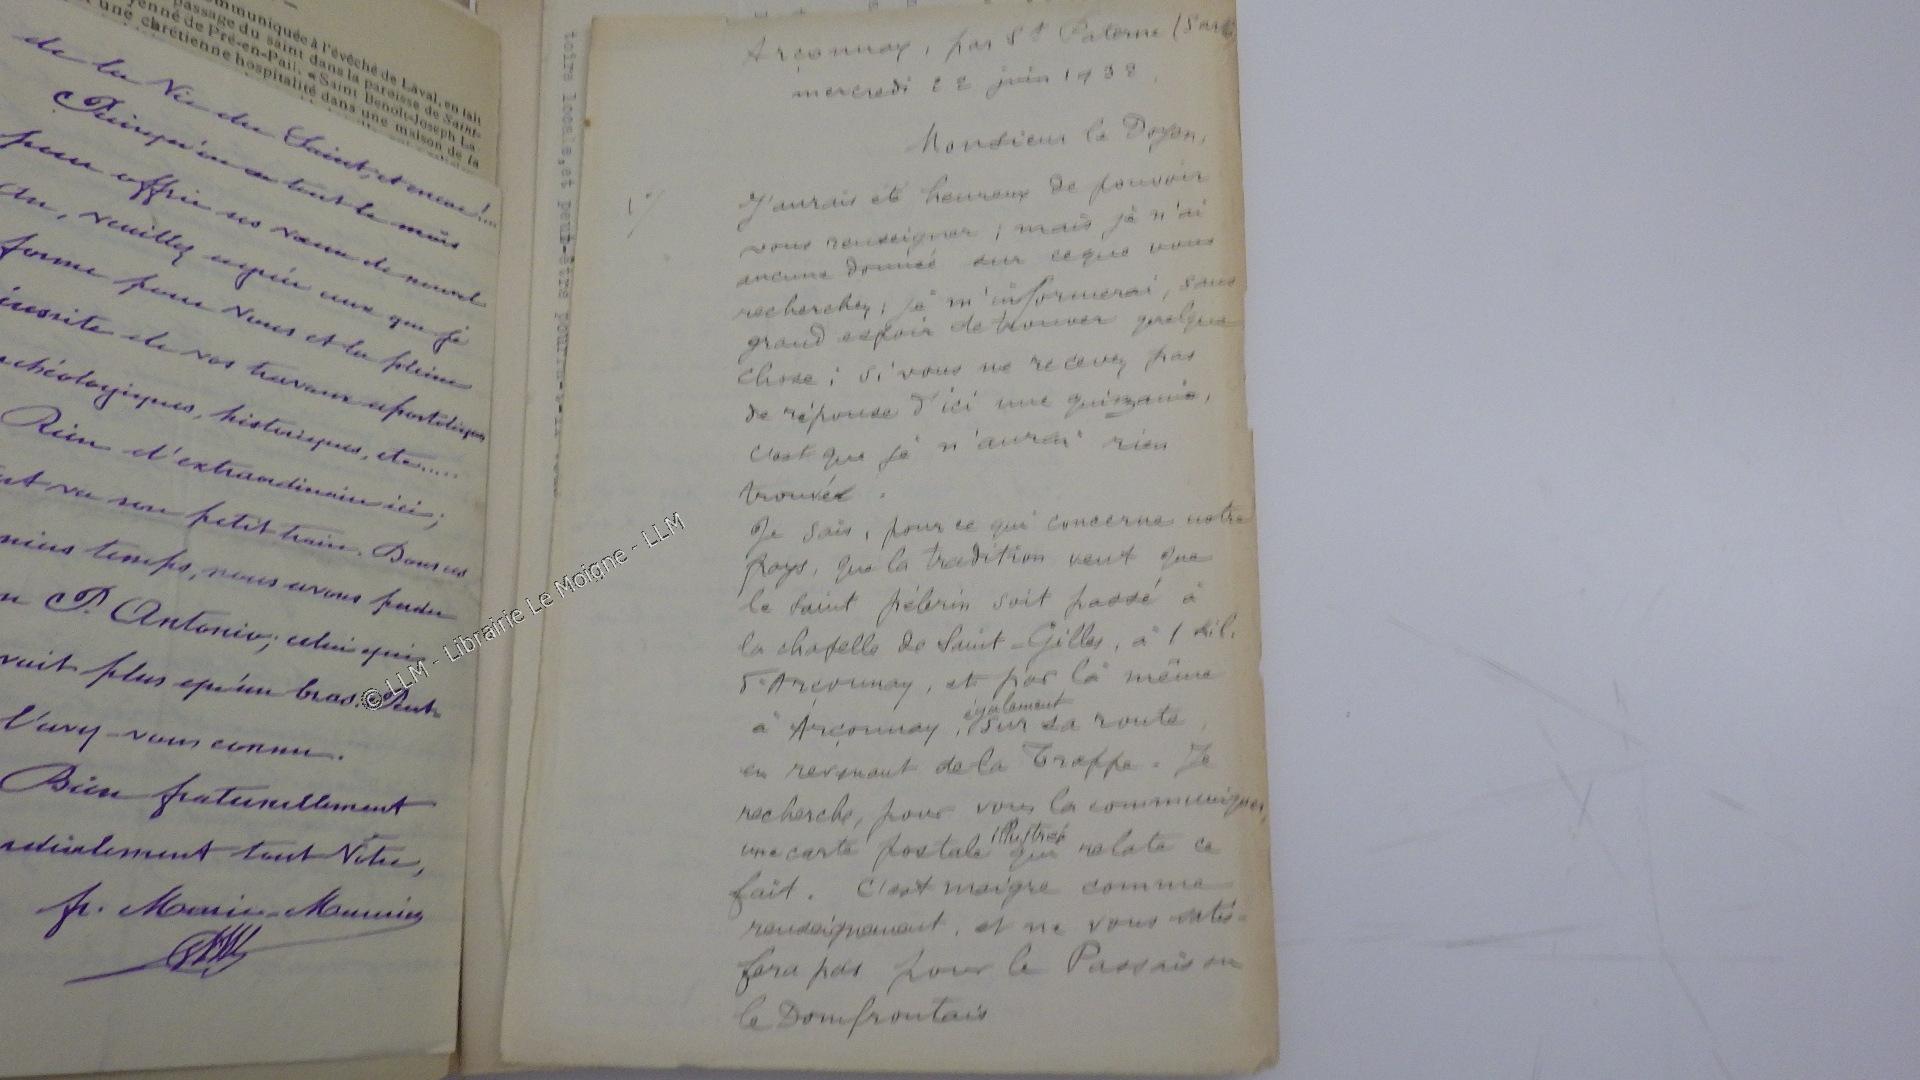 communiquée à l'évêché de Laval, en fait
passage du saint dans la paroisse de Saint-
yenné de Pré-en-Pail. « Saint Benoît-Joseph La-
une chrétienne hospitalité dans une maison de la
de la Vie du Saint, et encore!...
Puisqu'on a tout le mois
pour offrir ses vœux de nouvel
an, veuillez agréer ceux que je
forme pour Vous et la pleine
réussite de vos travaux apostoliques
archéologiques, historiques, etc.....
Rien d'extraordinaire ici;
va son petit train. Dans ces
niers temps, nous avons perdu
P. Antonio; celui qui
vait plus qu'un bras. Peut-
l'avez-vous connu.
Bien fraternellement
cordialement tout Vôtre,
fr. Marie-
toire locale, et peut-être pourra-t-il
Arçonnay, par St Paterne (Sarthe
mercredi 22 juin 1938.
Monsieur le Doyen,
1°/ J'aurais été heureux de pouvoir
vous renseigner ; mais je n'ai
aucune donnée sur ce que vous
recherchez ; je m'informerai, sans
grand espoir de trouver quelque
chose ; si vous ne recevez pas
de réponse d'ici une quinzaine,
c'est que je n'aurai rien
trouvé.
Je sais, pour ce qui concerne notre
pays, que la tradition veut que
le Saint pélerin soit passé à
la chapelle de Saint-Gilles, à 1 kil.
d'Arçonnay, et par là même
à Arçonnay, également sur sa route,
en revenant de la Trappe. Je
recherche, pour vous la communiquer,
une carte postale illustrée qui relate ce
fait. C'est maigre comme
renseignement, et ne vous satis-
fera pas pour le Passais ou
le Domfrontais
© LLM - Librairie Le Moigne - LLM